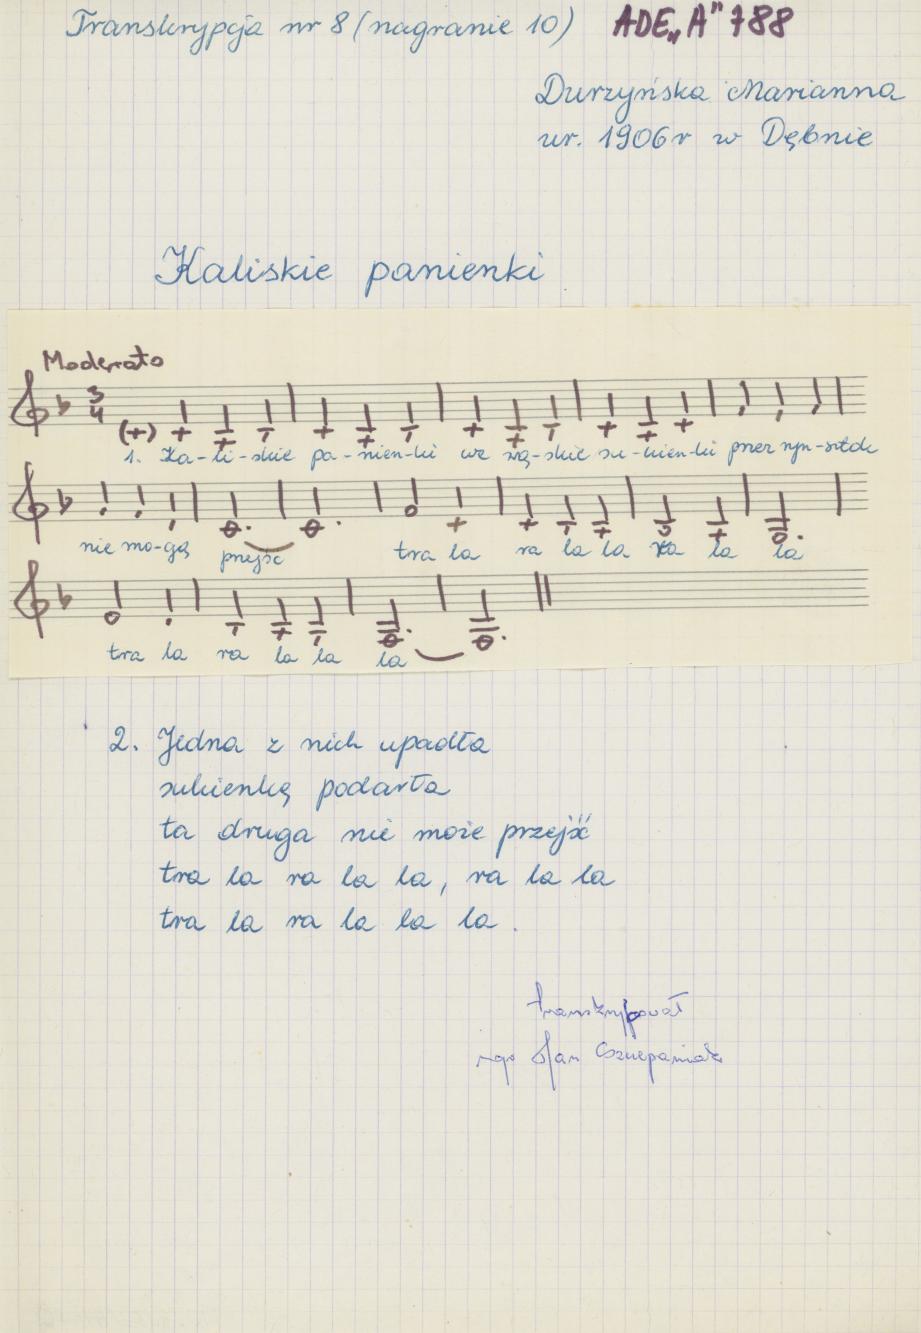 Transkrypcja nr 8 (nagranie 10) ADE„A" 788
Durzyńska Marianna
ur. 1906r w Dębnie
Kaliskie panienki
Moderato
3
4
1. Ka-li-skie pa-nien-ki we wą-skie su-kien-ki przez ryn-sztok
nie mo-gą przejść tra la ra la la ra la la
tra la ra la la la
2. Jedna z nich upadła
sukienkę podarła
ta druga nie może przejść
tra la ra la la, ra la la
tra la ra la la la.
transkrybował
mgr Jan Szczepaniak